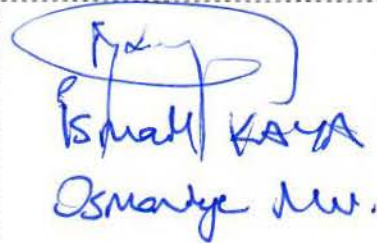 İsmail KAYA
Osmaniye Mv.